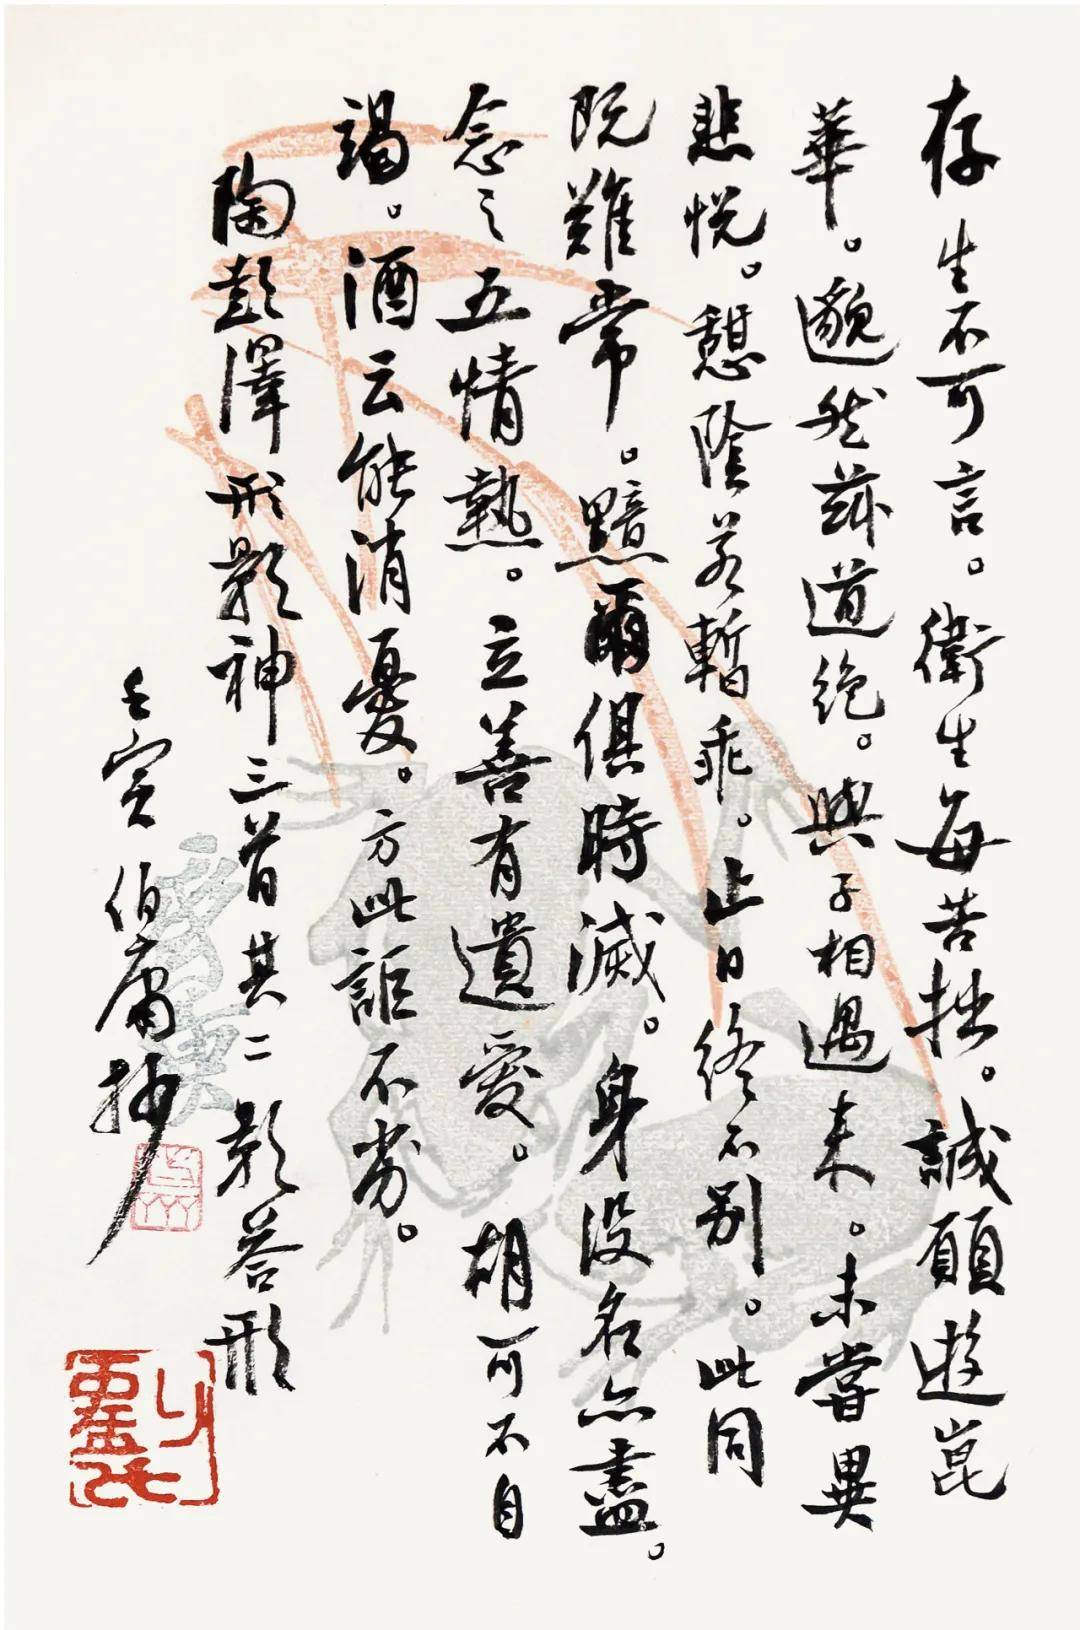 存生不可言。衛生每苦拙。誠願遊崑
華。邈然茲道絕。與子相遇来。未嘗異
悲悦。憩陰若暫乖。止日終不別。此同
既難常。黯爾俱時滅。身没名亦盡。
念之五情熱。立善有遺愛。胡可不自
竭。酒云能消憂。方此詎不劣。
陶彭澤形影神三首其二影荅形
壬寅伯庸抄